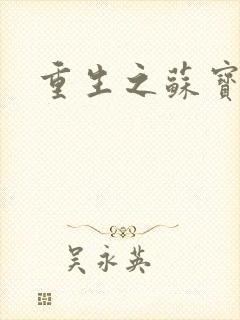 重生之蘇寶
吳永英